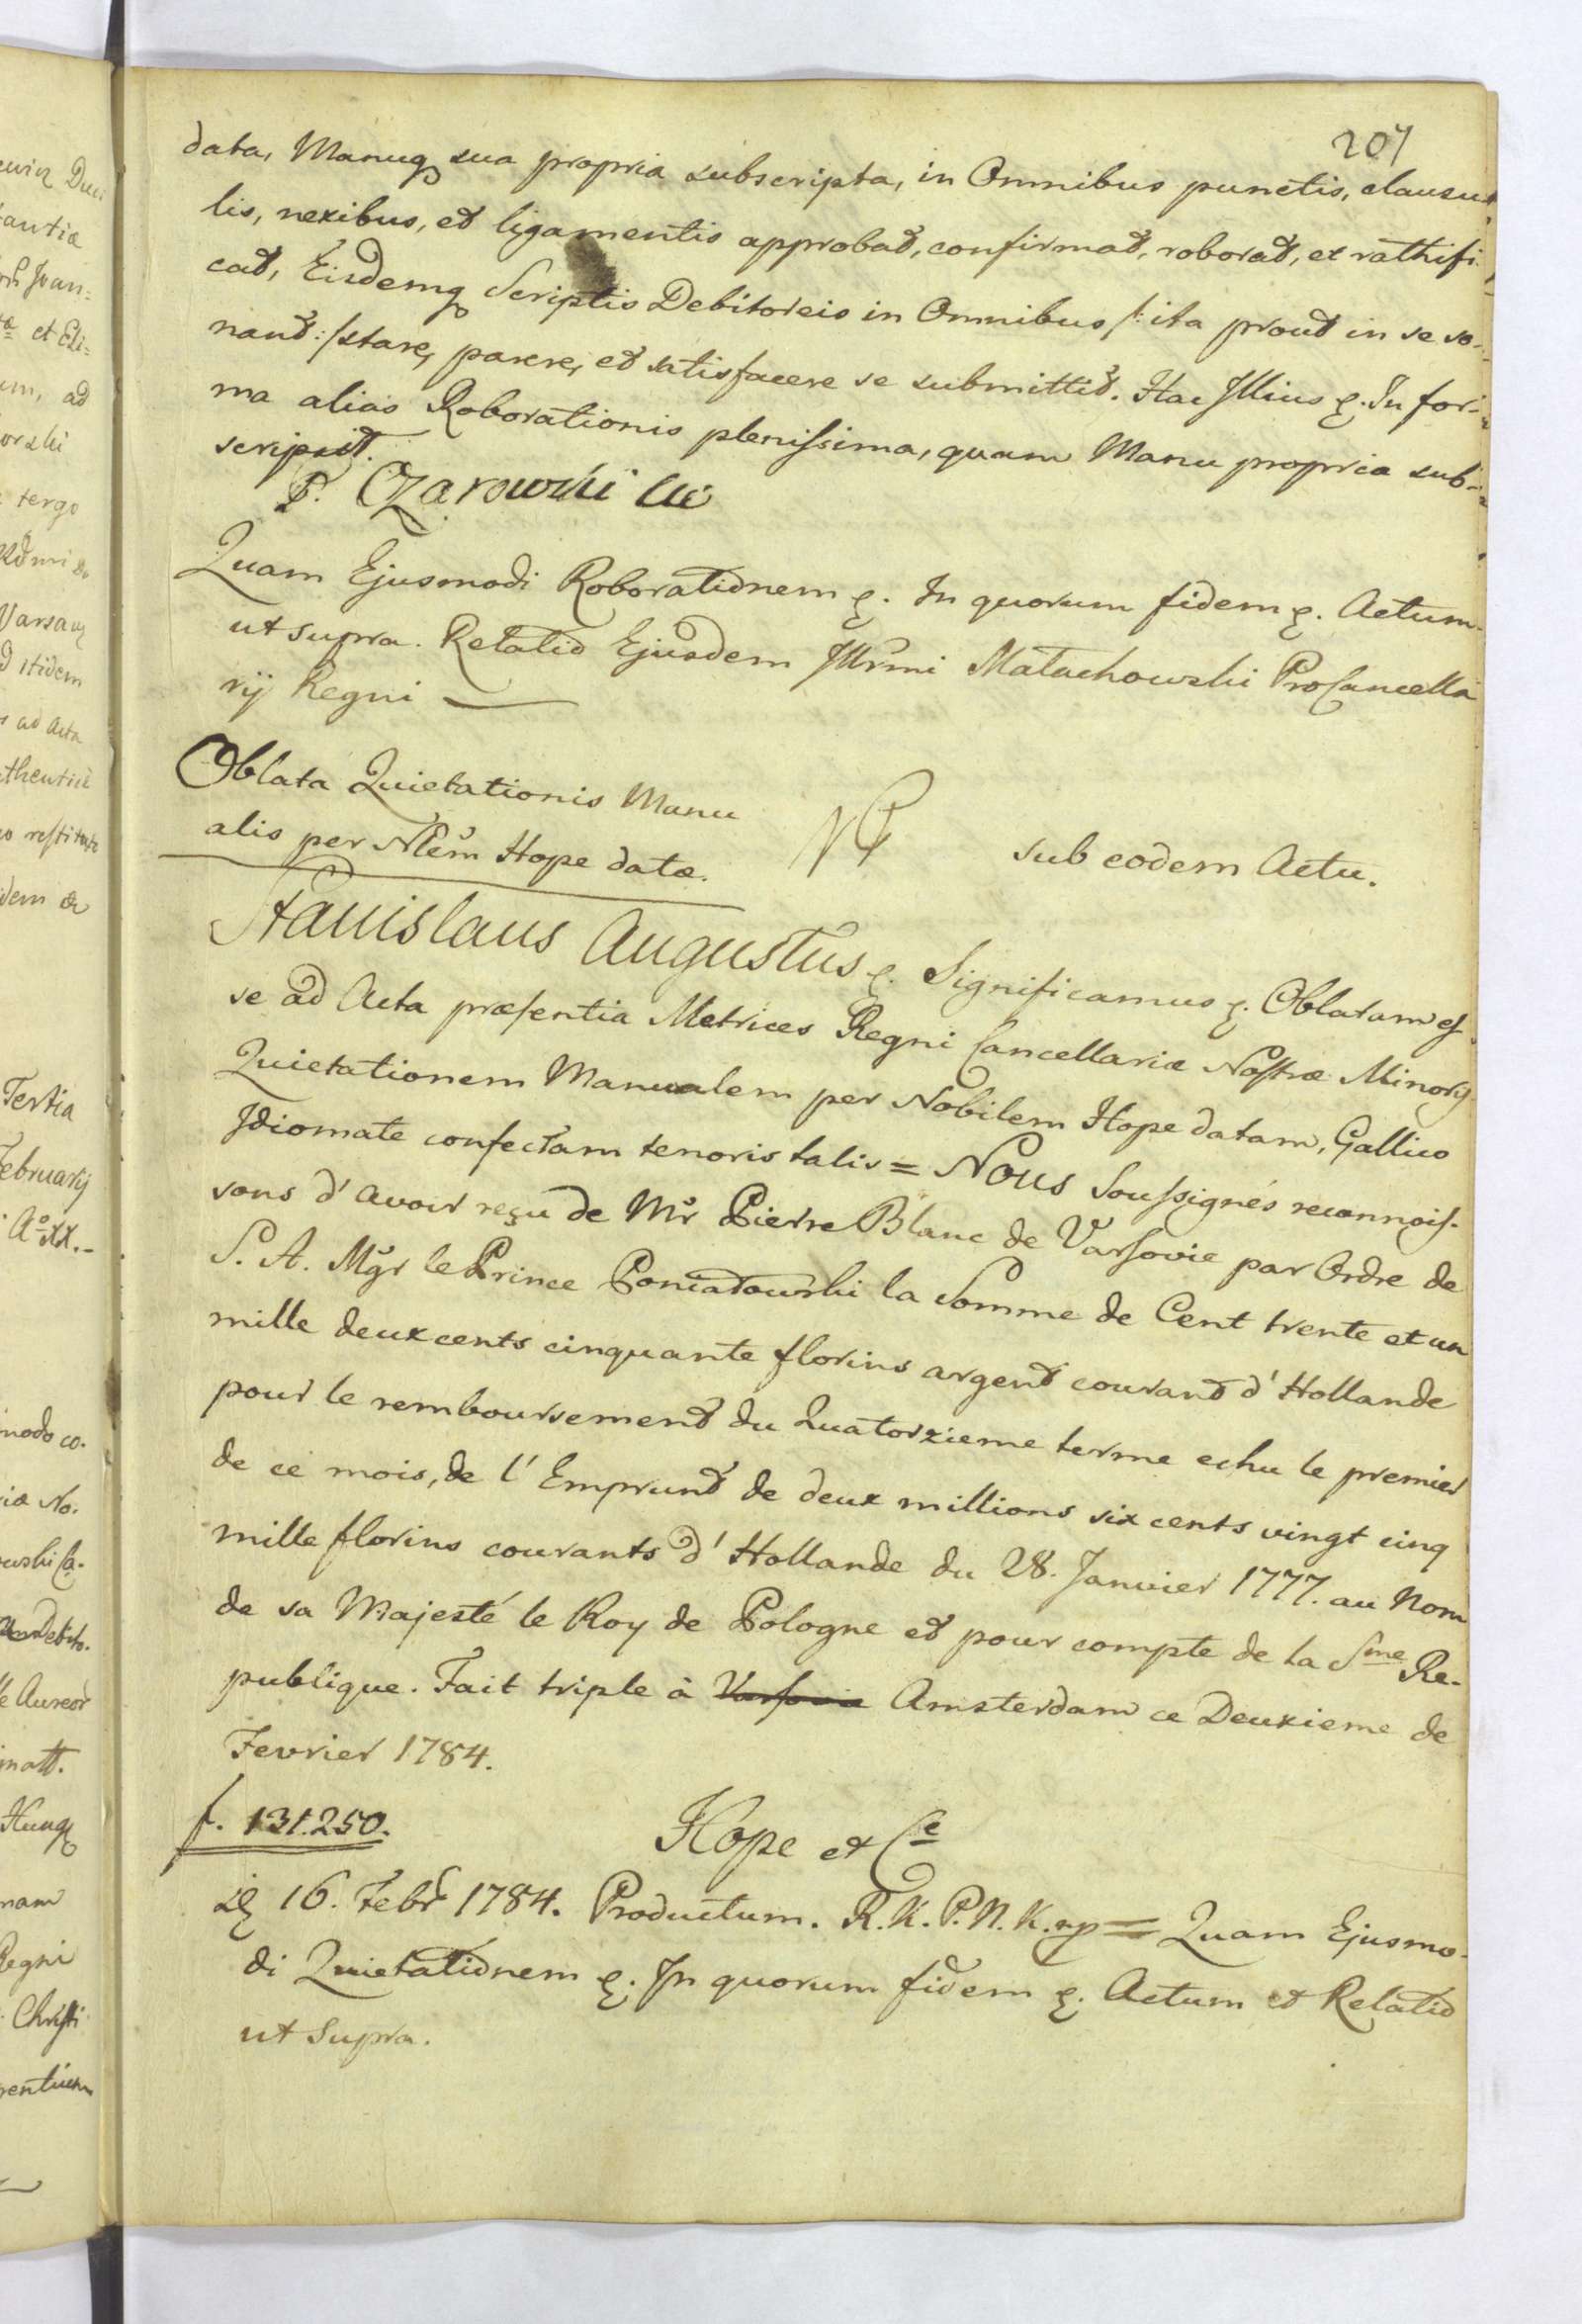 207
data, Manuq sua propria subscripta, in Omnibus punctis, clausu-
lis, nexibus, et ligamentis approbat, confirmat, roborat, et rathifi-
cat, Eisdemq Scriptis Debitoreis in Omnibus /: ita prout in se so-
nant :/ stare, parere, et satisfacere se submittit. Hac Illius &. In for-
ma alias Roborationis plenissima, quam Manu propria sub-
scripsit.
P. Czarowski
Quam Ejusmodi Roborationem &. In quorum fidem &. Actum
ut supra. Relatio Ejusdem Illrmi Małachowski ProCancella
rij Regni
Oblata Quietationis Manu
alis per Nlem Hope datæ.
sub eodem Actu.
Stanislaus Augustus &. Significamus &. Oblatam es
se ad Acta præsentia Metrices Regni Cancellariæ Nostræ Minoris
Quietationem Manualem per Nobilem Hope datam, Gallico
Idiomate confectam tenoris talis = Nous Soussignés reconnois-
sons d'avoir reçu de Mr Pierre Blanc de Varsovie par Ordre de
S. A. Mgr le Prince Poniatowski la Somme de Cent trente et un
mille deux cents cinquante florins argent courant d'Hollande
pour le remboursement du Quatorzieme terme echu le premier
de ce mois, de l'Emprunt de deux millions six cents vingt cinq
mille florins courants d'Hollande du 28. Janvier 1777. au Nom
de sa Majesté le Roy de Pologne et pour compte de la Sme Re-
publique. Fait triple à Varsovie Amsterdam ce Deuxieme de
Fevrier 1784.
f. 131.250.
Hope et Ce
16. Febr 1784. Productum. R. K. P. N. K. = Quam Ejusmo-
di Quietationem &. In quorum fidem &. Actum et Relatio
ut supra.